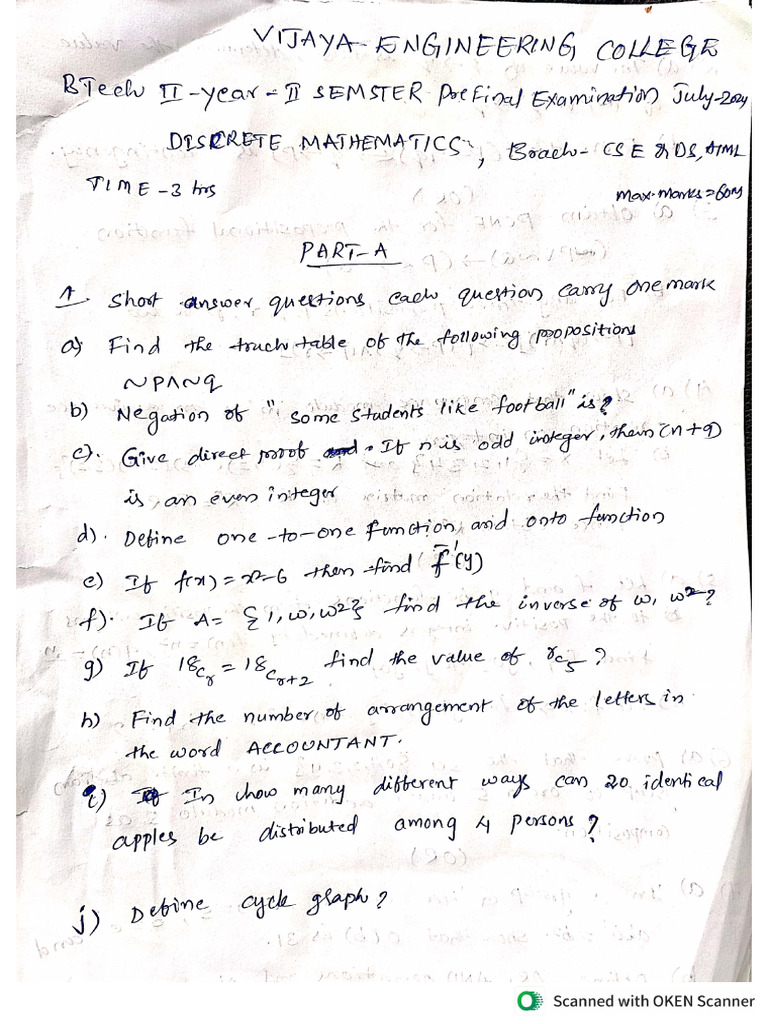 VIJAYA ENGINEERING COLLEGE
BTech II-year-II SEMSTER Pre Final Examination July-2024
DISCRETE MATHEMATICS, Brach- CSE & DS, AIML
TIME-3 hrs
max.marks=60M
PART-A
1. Short answer questions each question carry one mark
a) Find the truch table of the following propositions
~P∧~q
b) Negation of "some students like football" is?
c). Give direct proof. If n is odd integer, then (n+9)
is an even integer
d). Define one-to-one function, and onto function
e) If f(x) = x²-6 then find f⁻¹(y)
f). If A = {1, ω, ω2} find the inverse of ω, ω²?
g) If 18Cr = 18Cr+2 find the value of rC5?
h) Find the number of arrangement of the letters in
the word ACCOUNTANT.
i) In how many different ways can 20 identical
apples be distributed among 4 persons?
j) Define cycle graph?
Scanned with OKEN Scanner